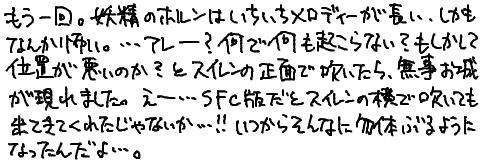 もう一回。妖精のホルンはいちいちメロディーが長い、しかも
なんか怖い。…アレー？何で何も起こらない？もしかして
位置が悪いのか？とスイレンの正面で吹いたら、無事お城
が現れました。えー…SFC版だとスイレンの横で吹いても
出てきてくれたじゃないか…!!いつからそんなに勿体ぶるように
なったんだよ…。